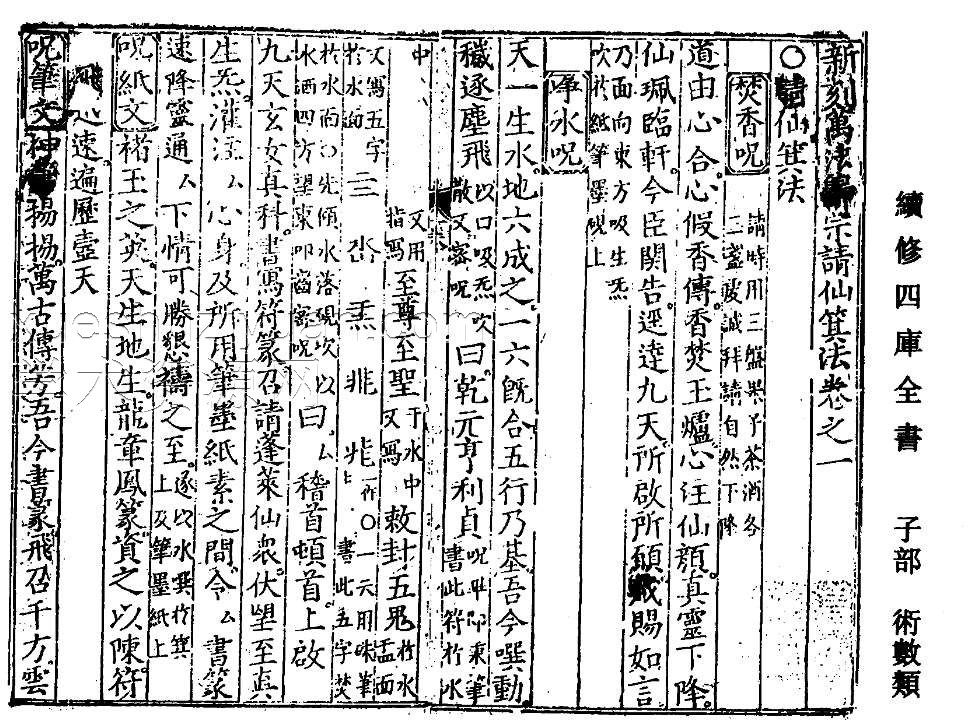 續修四庫全書 子部 術數類
新刻萬法歸宗請仙箕法卷之一
○請仙箕法
焚香呪 請時用三盤果子茶酒各三盞䖍誠拜請自然下降
道由心合心假香傳香焚玉爐心注仙顏真靈下降
仙珮臨軒今臣関告逕達九天所啟所願咸賜如言
乃面向東方吸生炁吹於紙筆墨硯上
凈水呪
天一生水地六成之一六旣合五行乃基吾今噀動
穢逐塵飛 以口吸炁吹散又密呪 曰乾元亨利貞 呪畢即東筆書此符於水
中 又用指寫 至尊至聖 于水中又寫 敕封五鬼 於水盂面
又寫五字於水面 書此五字焚
水洒四方望東叩齒密呪 曰稽首頓首上啟
九天玄女真科書寫符篆召請蓬萊仙衆伏望至真
生炁灌注厶心身及所用筆墨紙素之間令厶書篆
速降靈通厶下情可勝懇禱之至 遂以水噀於箕上及筆墨紙上
呪紙文 楮玉之英天生地生龍章鳳篆資之以陳符
飛迅速遍歷盡天
呪筆文 神 揚揚萬古傳芳吾今書篆飛召千方雲